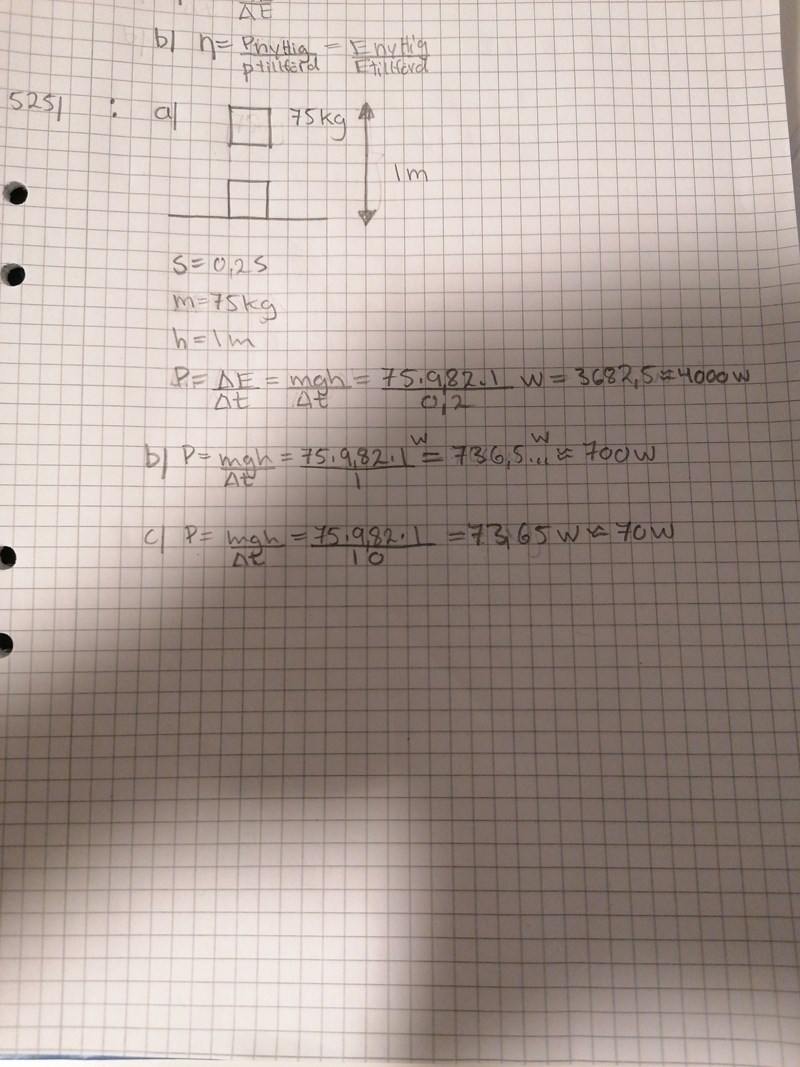 ΔE
b) η = Pnyttig / Ptillförd = Enyttig / Etillförd
525) : a) 75kg
1m
S = 0,2 s
m = 75kg
h = 1m
P = ΔE/Δt = mgh/Δt = 75·9,82·1/0,2 W = 3682,5 ≈ 4000W
b) P = mgh/Δt = 75·9,82·1/1 W = 736,5... W ≈ 700W
c) P = mgh/Δt = 75·9,82·1/10 = 73,65 W ≈ 70W